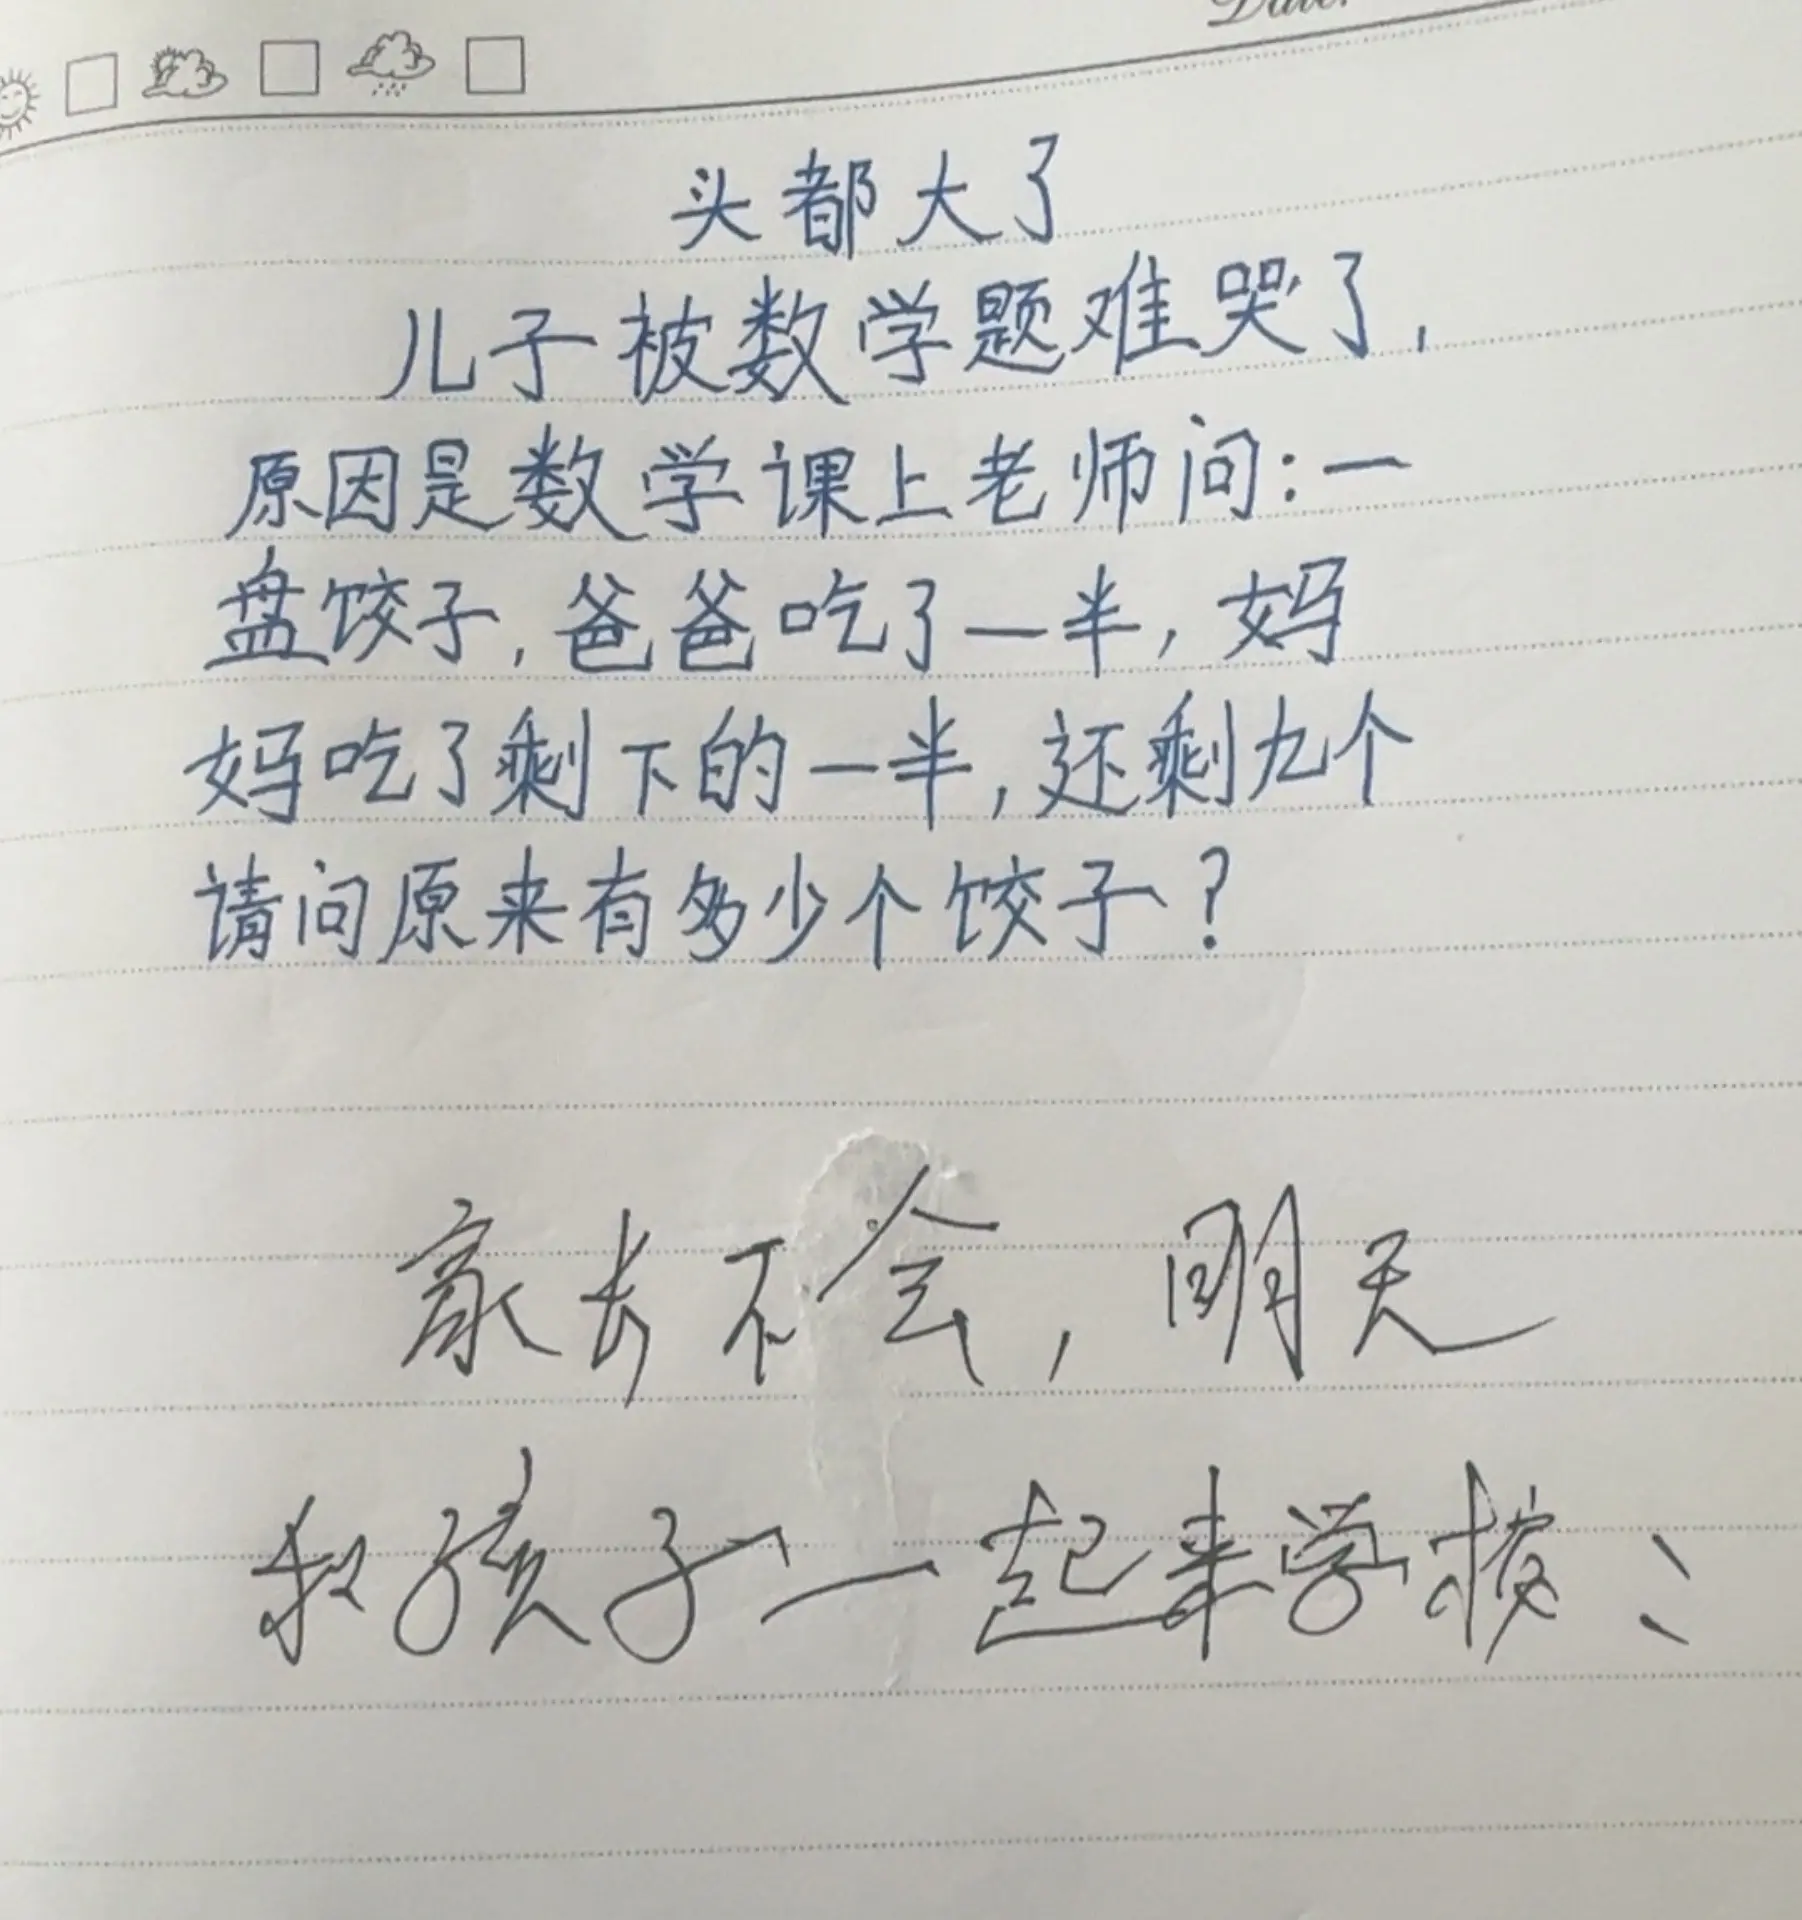 Date.
头都大了
儿子被数学题难哭了,
原因是数学课上老师问:一
盘饺子,爸爸吃了一半,妈
妈吃了剩下的一半,还剩九个
请问原来有多少个饺子?
家长不会,明天
和孩子一起来学校: